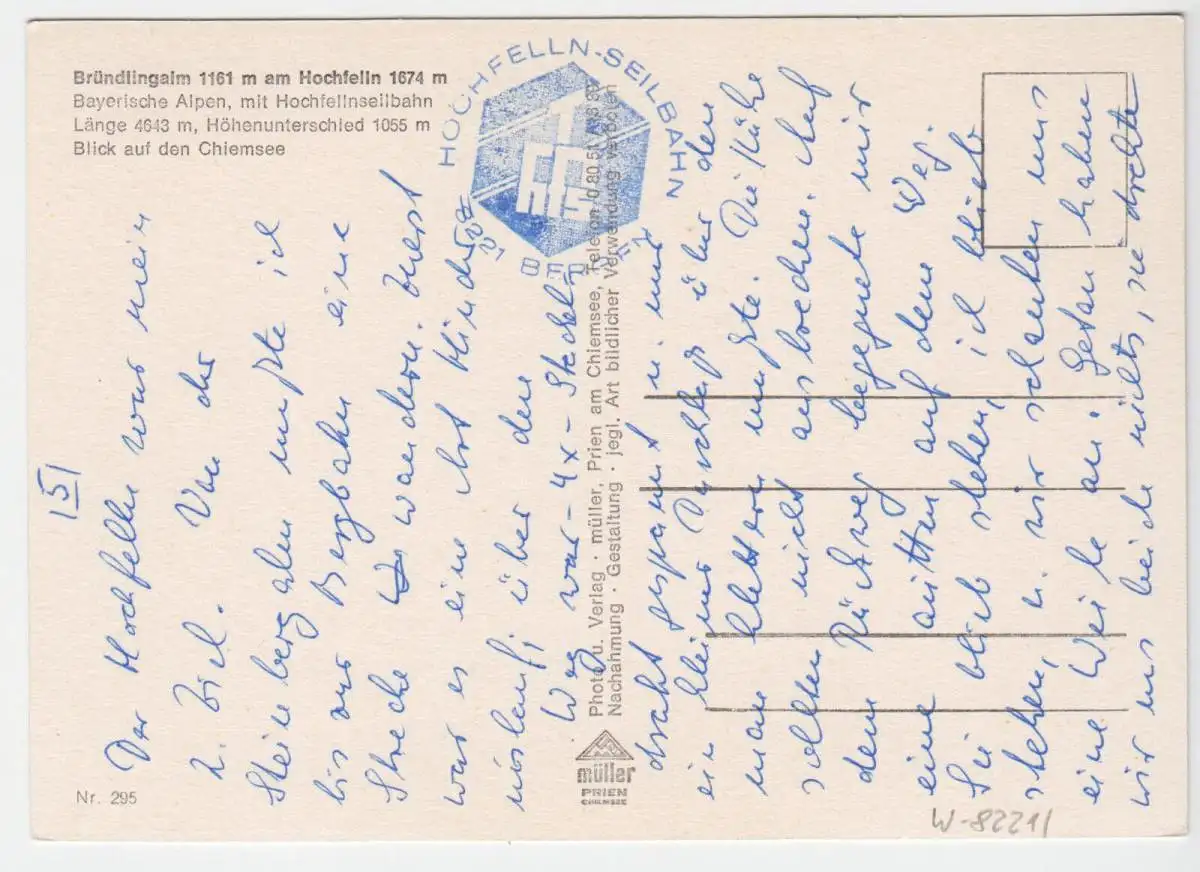 Bründlingalm 1161 m am Hochfelln 1674 m
Bayerische Alpen, mit Hochfellnseilbahn
Länge 4643 m, Höhenunterschied 1055 m
Blick auf den Chiemsee
HOCHFELLN-SEILBAHN
BERGEN
|5|
Der Hochfelln war mein
2. Ziel. Von der
Steinbergalm mußte ich
bis zur Bergbahn eine
Strecke wandern. Zuerst
war es eine fast blinde
über den
Weg war - 4x - Stachel-
draht gespannt u. nur
ein kleiner Durchlaß über den
man klettern mußte. Die Kühe
sollten nicht ausbrechen. Auf
dem Rückweg begegnete mir
eine mitten auf dem Weg.
Sie blieb stehen, ich blieb
stehen, u. wir schauten uns
eine Weile an. Getan haben
wir uns beide nichts, sie drehte
Photo u. Verlag · müller, Prien am Chiemsee, Telefon
Nachahmung · Gestaltung · jegl. Art bildlicher Verwendung verboten
müller
PRIEN
CHIEMSEE
Nr. 295
W-8221/